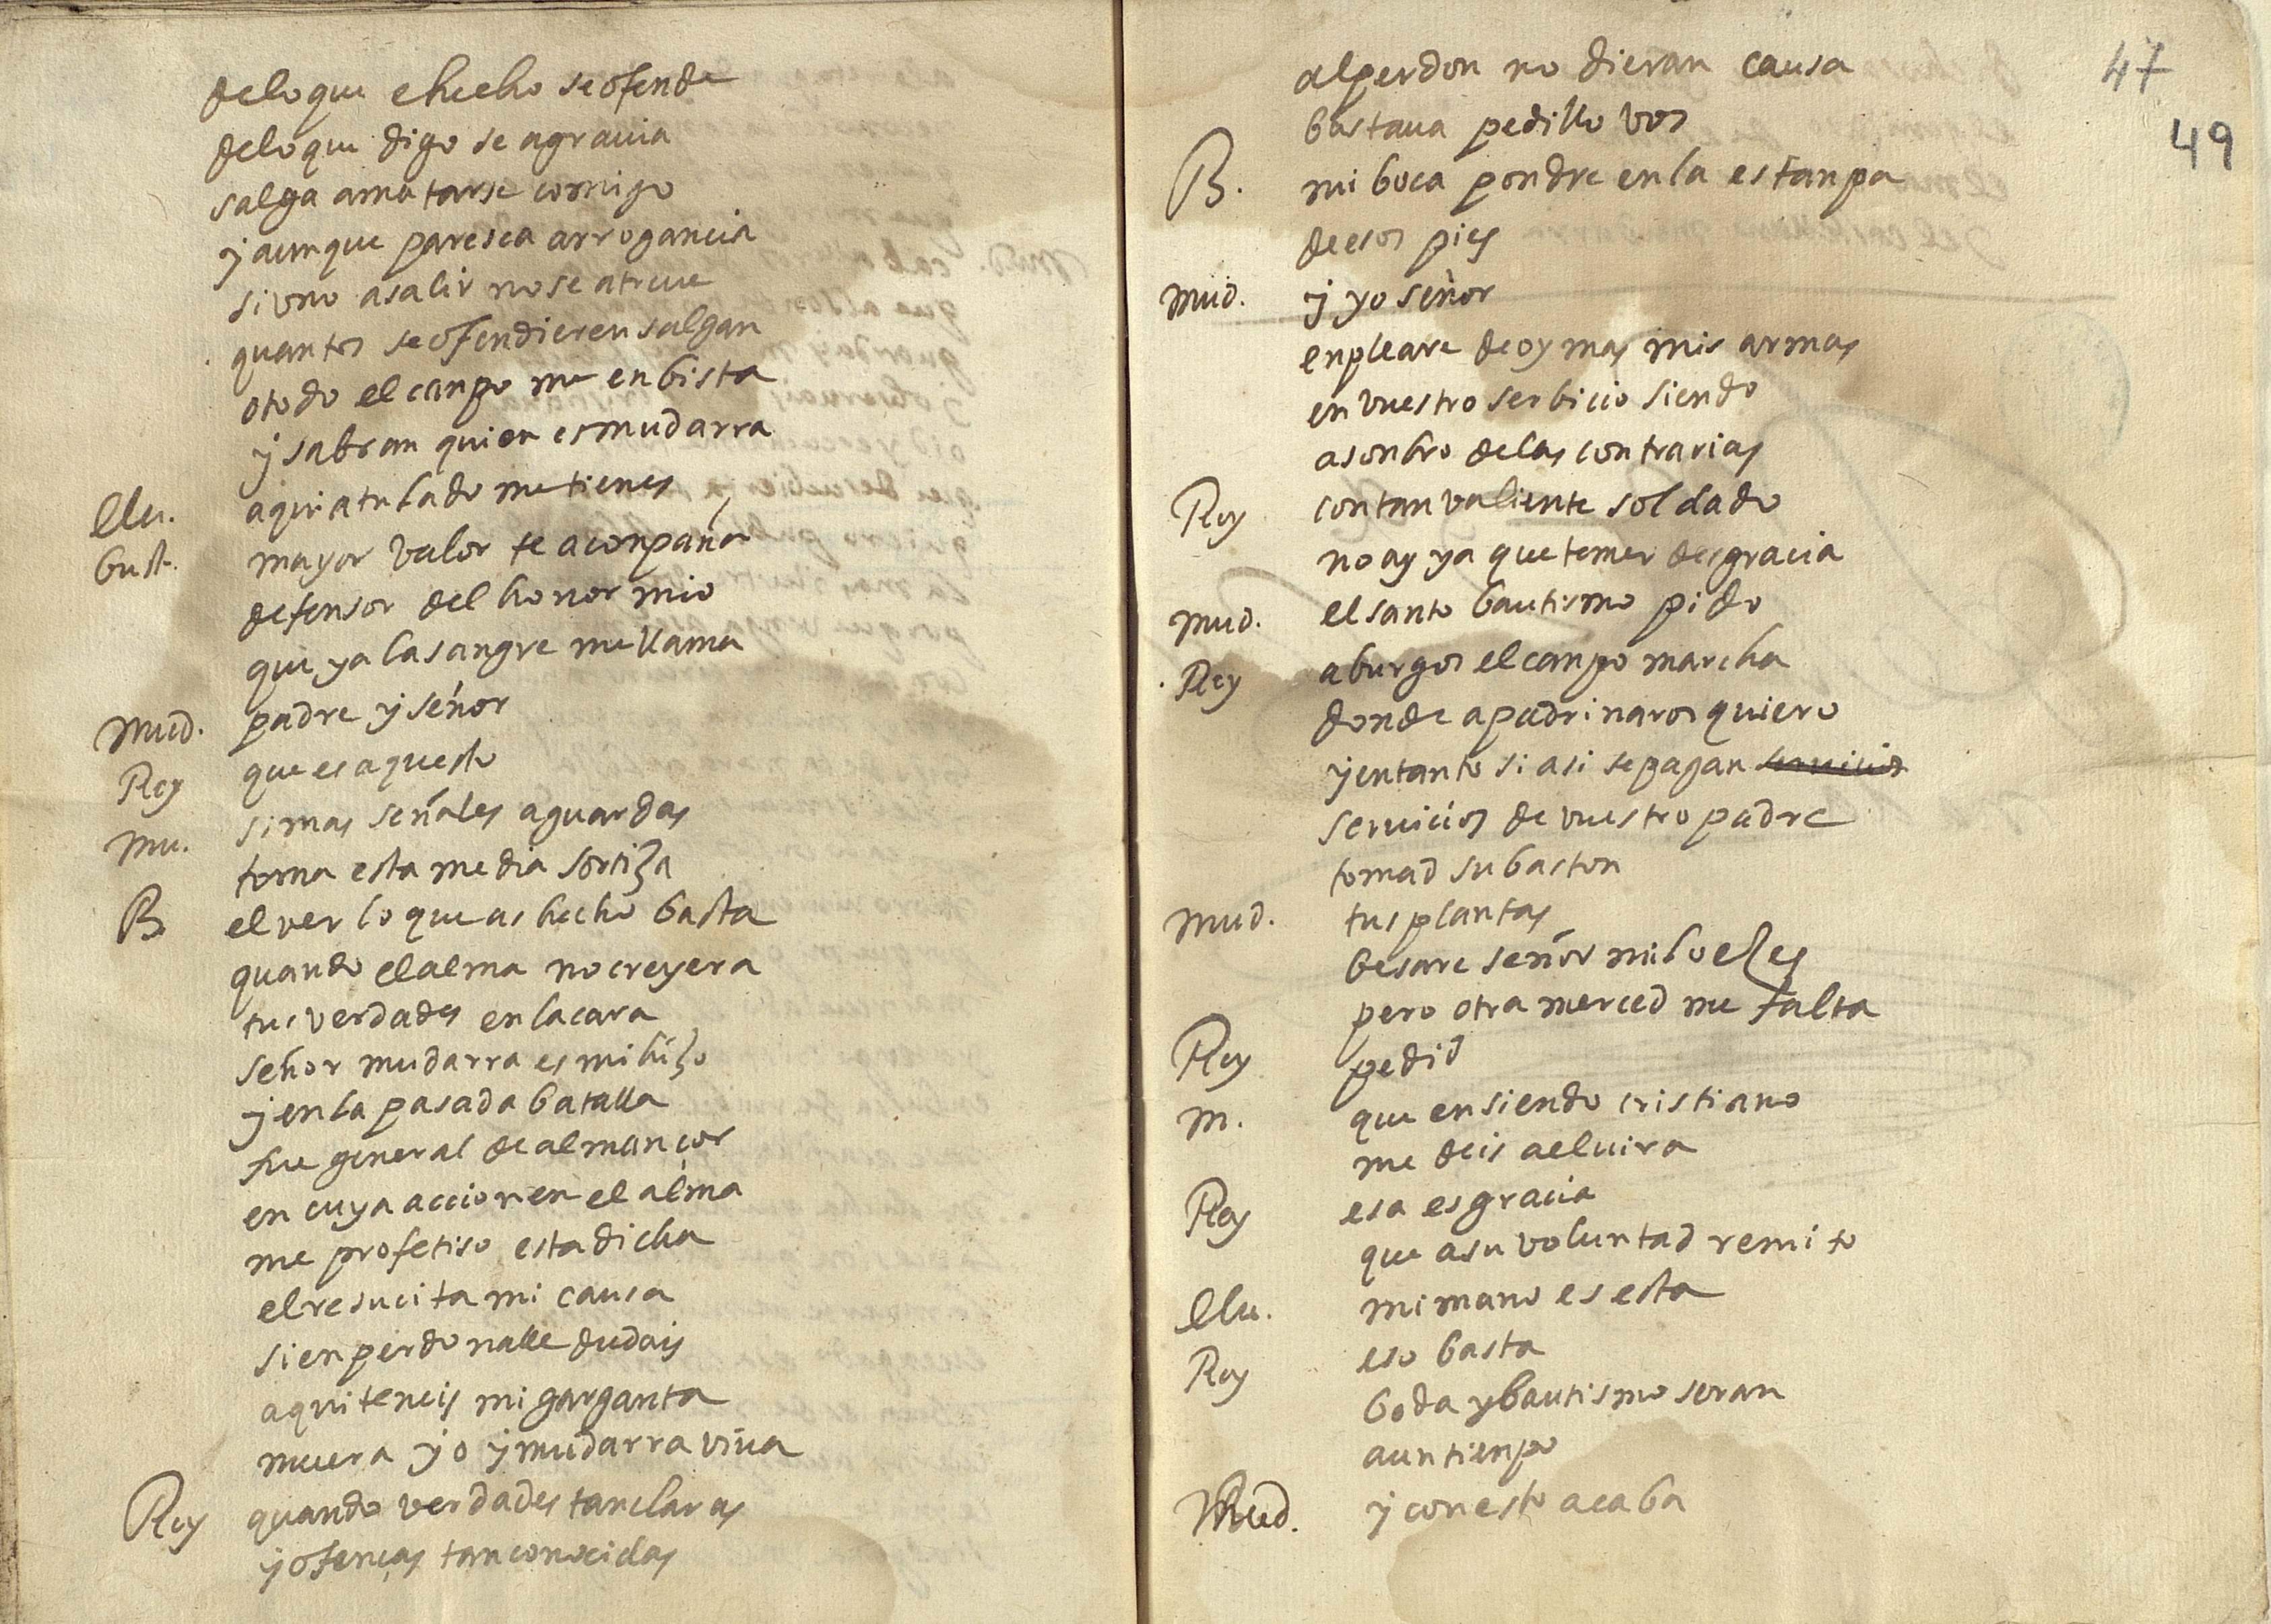 deloque e hecho se ofende
deloque digo se agrauia
salga amatarse comigo
y aunque paresca arrogancia
si uno asalir nose atreue
quantos se ofendieren salgan
o todo el canpo me enbista
y sabran quien es mudarra
Elu. aqui atu lado me tienes
bust. mayor valor te aconpaña
defensor del honor mio
que ya la sangre me llama
Mud. padre y señor
Rey que es aquesto
Mu. si mas señales aguardas
toma esta media sortija
B. el ver lo que as hecho basta
quando el alma no creyera
tus verdades en la cara
señor mudarra es mi hijo
y en la pasada batalla
fue general de almançor
en cuya accion en el alma
me profetiso esta dicha
el resucita mi causa
si en perdonalle dudais
aqui teneis mi garganta
muera yo y mudarra viua
Rey quando verdades tan claras
y ofenças tan conocidas
47
49
al perdon no dieran causa
bastaua pedillo vos
B. mi boca pondre en la estanpa
de esos pies
Mud. y yo señor
enpleare de oy mas mis armas
en vuestro serbicio siendo
asonbro de las contrarias
Rey con tan valiente soldado
no ay ya que temer desgracia
Mud. el santo bautismo pido
Rey a burgos el canpo marcha
donde apadrinaros quiero
y entanto si asi se pagan seruicios
seruicios de vuestro padre
tomad su baston
Mud. tus plantas
besare señor mil veses
pero otra merced me falta
Rey pedid
M. que en siendo cristiano
me deis a eluira
Rey esa es gracia
que asu voluntad remito
Elu. mi mano es esta
Rey eso basta
boda y bautismo seran
aun tienpo
Mud. y con esto acaba